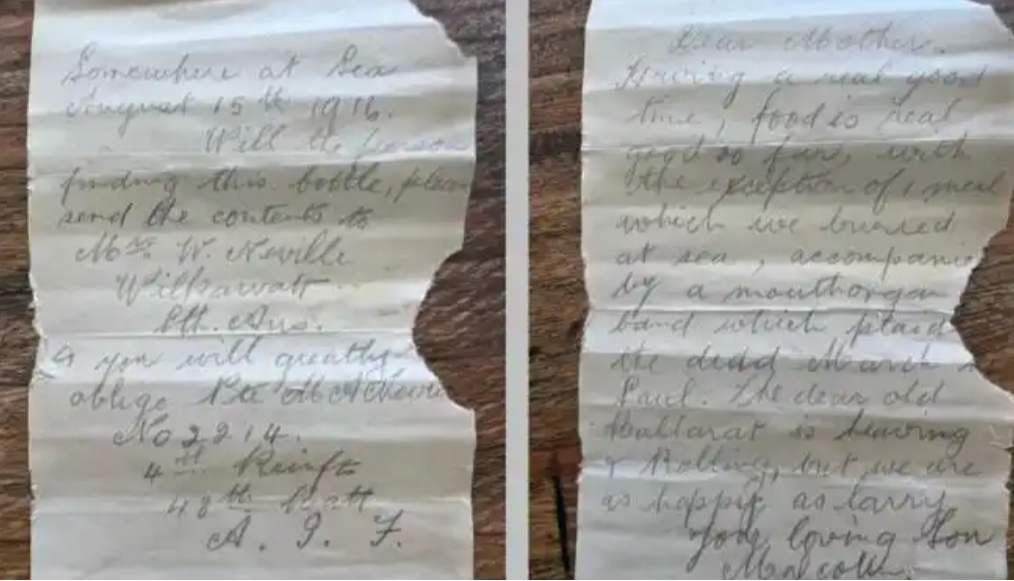 Somewhere at Sea
August 15th 1916.
Will the person
finding this bottle, please
send the contents to
Mrs W. Neville
Wilkawatt
Sth. Aus.
& you will greatly
oblige Pte M A Neville
No 2214.
4th Reinfts
48th Batt
A. I. F.
Dear Mother.
Having a real good
time, food is real
good so far, with
the exception of 1 meal
which we buried
at sea, accompanied
by a mouthorgan
band which plaid
the dead March
Saul. The dear old
Ballarat is heaving
& Rolling, but we are
as happy as larry
Your loving Son
Malcolm